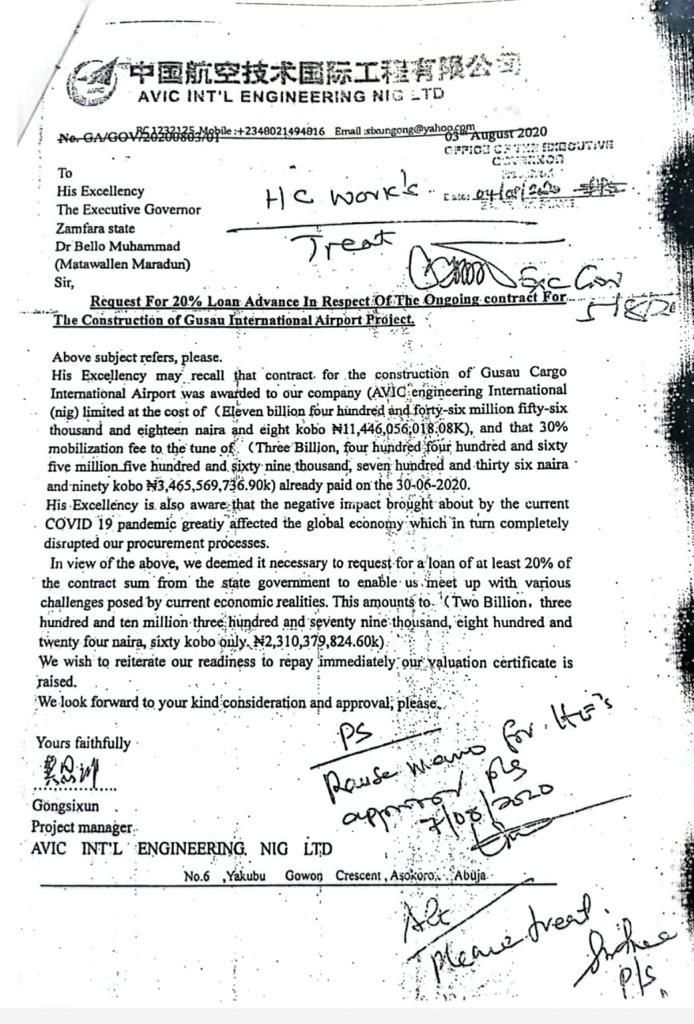 中国航空技术国际工程有限公司
AVIC INT'L ENGINEERING NIG LTD
RC1232125 Mobile :+2348021494816 Email :sixungong@yahoo.com
No. GA/GOV/20200803/01
03rd August 2020
OFFICE OF THE EXECUTIVE
GOVERNOR
To
His Excellency
The Executive Governor
Zamfara state
Dr Bello Muhammad
(Matawallen Maradun)
Sir,
HC Work's
04/08/2020
Treat
Exc Gov
5/8/20
Request For 20% Loan Advance In Respect Of The Ongoing contract For
The Construction of Gusau International Airport Project.
Above subject refers, please.
His Excellency may recall that contract for the construction of Gusau Cargo
International Airport was awarded to our company (AVIC engineering International
(nig) limited at the cost of (Eleven billion four hundred and forty-six million fifty-six
thousand and eighteen naira and eight kobo ₦11,446,056,018.08K), and that 30%
mobilization fee to the tune of (Three Billion, four hundred four hundred and sixty
five million five hundred and sixty nine thousand, seven hundred and thirty six naira
and ninety kobo ₦3,465,569,736.90k) already paid on the 30-06-2020.
His Excellency is also aware that the negative impact brought about by the current
COVID 19 pandemic greatly affected the global economy which in turn completely
disrupted our procurement processes.
In view of the above, we deemed it necessary to request for a loan of at least 20% of
the contract sum from the state government to enable us meet up with various
challenges posed by current economic realities. This amounts to (Two Billion, three
hundred and ten million three hundred and seventy nine thousand, eight hundred and
twenty four naira, sixty kobo only. ₦2,310,379,824.60k)
We wish to reiterate our readiness to repay immediately our valuation certificate is
raised.
We look forward to your kind consideration and approval, please.
Yours faithfully
Gongsixun
Project manager
AVIC INT'L ENGINEERING NIG LTD
No.6 ,Yakubu Gowon Crescent, Asokoro, Abuja
PS
Rause memo for HE's
approval pls
7/08/2020
please treat.
P/S